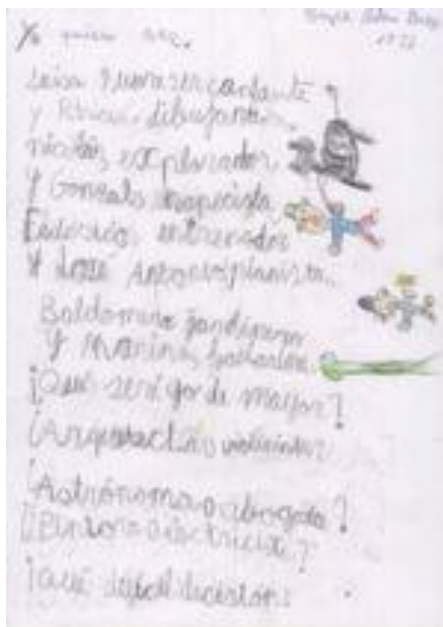 Yo quiero ser.
Luisa quiere ser cantante
y dibujante.
nicolás, explorador
Y Gonzalo trapecista
Federico, entrenador
Y José Antonio, pianista.
Baldomero jardinero
Y Marina, bailarina.
¡Qué seré yo de mayor?
¿Arquitecta o violinista?
¿Astrónoma o abogada?
¿Pintora o electricista?
¡Qué difícil decisión!